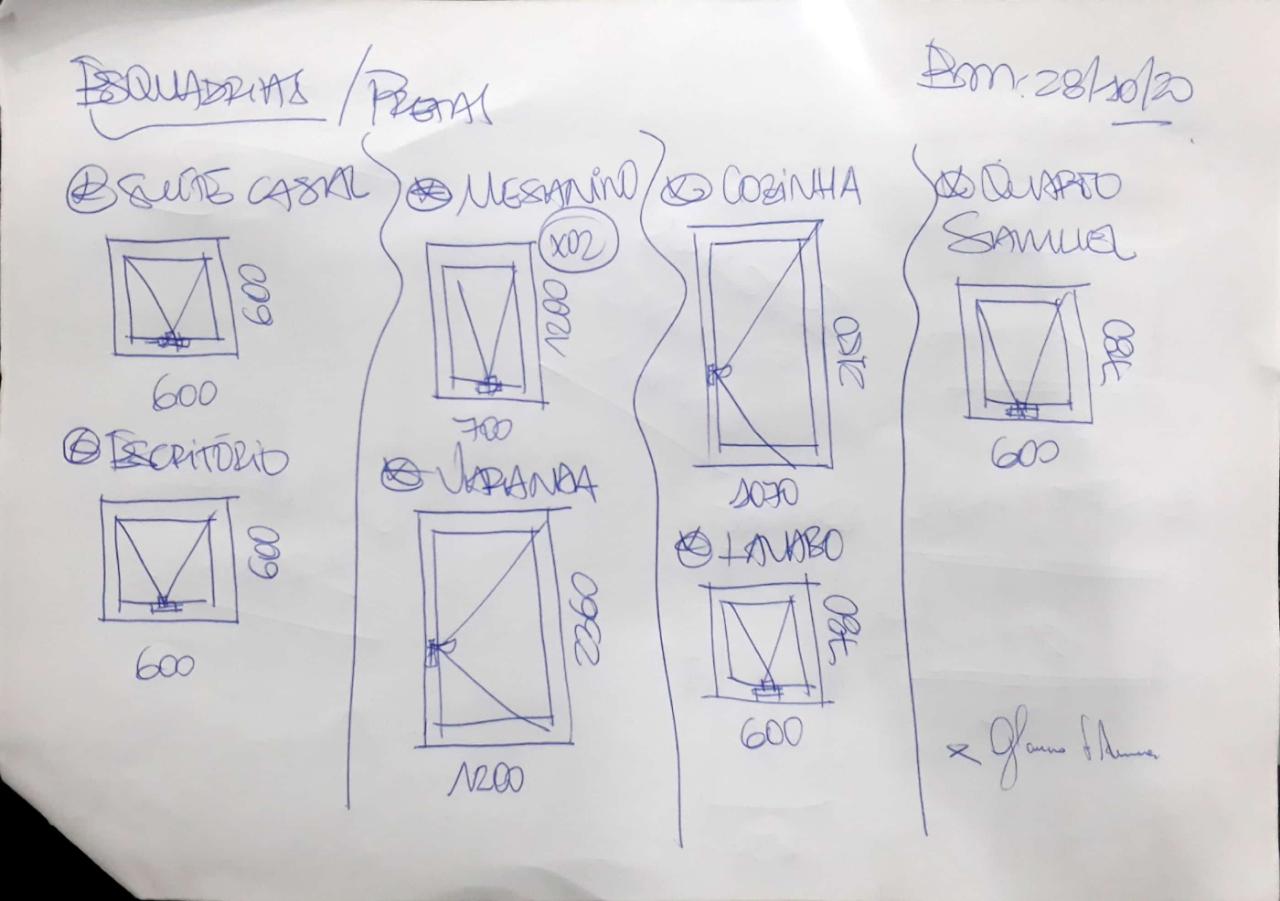 ESQUADRIAS / PRETAS
Bm: 28/10/20
SUÍTE CASAL
600
600
ESCRITÓRIO
600
600
MESANINO
X02
1200
700
VARANDA
2360
1200
COZINHA
2120
1070
LAVABO
780
600
QUARTO
SAMUEL
780
600
x